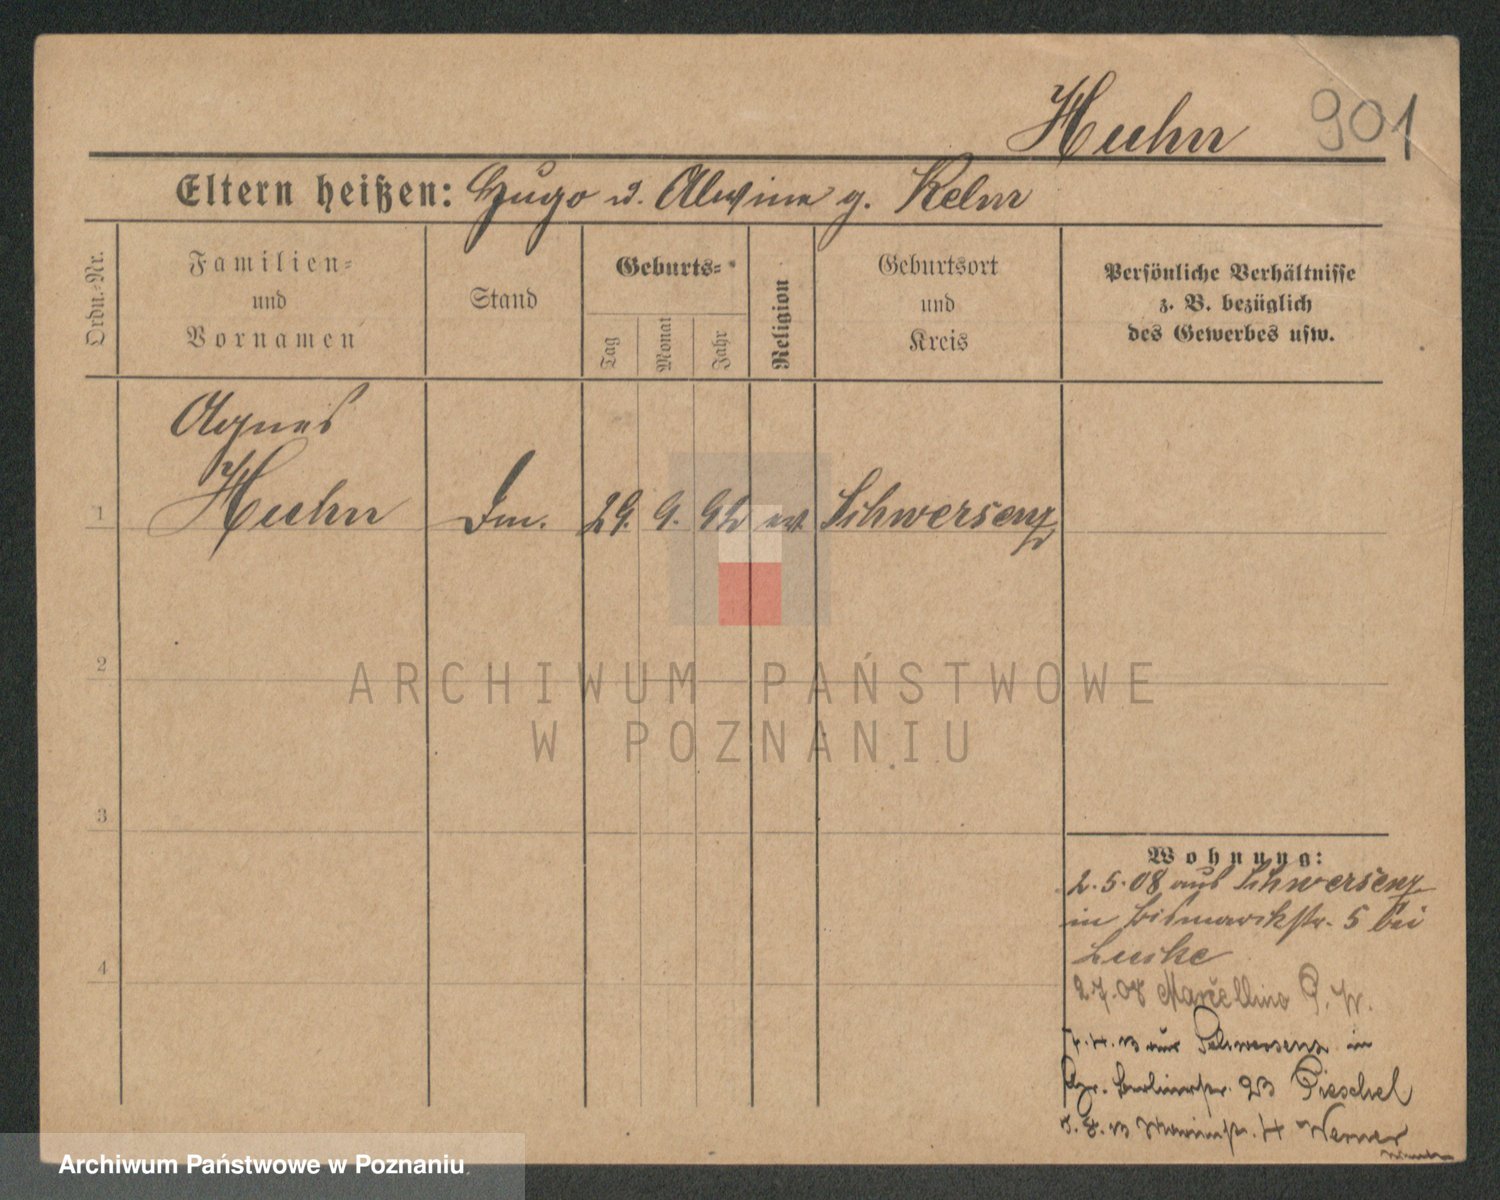 Huhn 901
Eltern heißen: Hugo u. Alwine g. Kelm
Ordn.-Nr.
Familien-
und
Vornamen
Stand
Geburts-
Tag
Monat
Jahr
Religion
Geburtsort
und
Kreis
Persönliche Verhältnisse
z. B. bezüglich
des Gewerbes usw.
Agnes
1 Huhn 29. 9. 92 ev. Schwersenz
2
3
4
Wohnung:
2.5.08 aus Schwersenz
in Bismarckstr. 5 bei
Luske
2.7.08 Marcellino P. W.
aus Schwersenz in
Berlinerstr. 23 Pieschel
4 Werner
ARCHIWUM PAŃSTWOWE
W POZNANIU
Archiwum Państwowe w Poznaniu